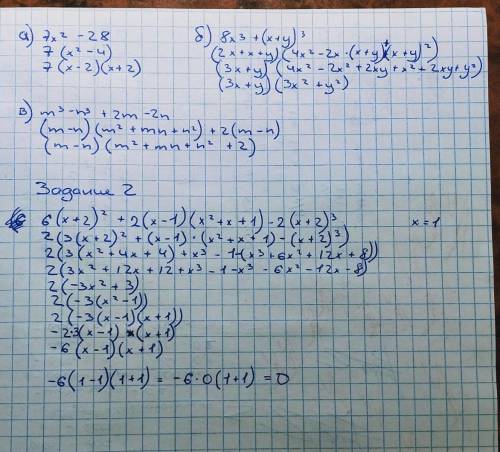 а) 7x² - 28
7 (x² - 4)
7 (x - 2)(x + 2)
б) 8x³ + (x + y)³
(2x + x + y)(4x² - 2x · (x + y) + (x + y)²)
(3x + y)(4x² - 2x² + 2xy + x² + 2xy + y²)
(3x + y)(3x² + y²)
в) m³ - n³ + 2m - 2n
(m - n)(m² + mn + n²) + 2(m - n)
(m - n)(m² + mn + n² + 2)
Задание 2
6(x + 2)² + 2(x - 1)(x² + x + 1) - 2(x + 2)³ x = 1
2(3(x + 2)² + (x - 1) · (x² + x + 1) - (x + 2)³)
2(3(x² + 4x + 4) + x³ - 1 - (x³ + 6x² + 12x + 8))
2(3x² + 12x + 12 + x³ - 1 - x³ - 6x² - 12x - 8)
2(-3x² + 3)
2(-3(x² - 1))
2(-3(x - 1)(x + 1))
-2·3(x - 1) (x + 1)
-6 (x - 1)(x + 1)
-6(1 - 1)(1 + 1) = -6 · 0(1 + 1) = 0